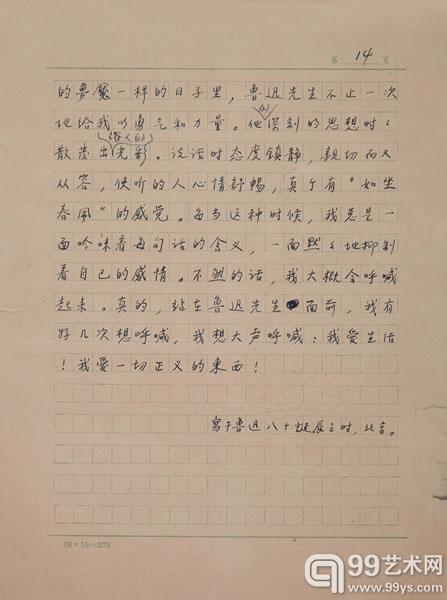 第 14 页
的梦魇一样的日子里，鲁迅先生不止一次
地给我以勇气和力量。他的深刻的思想时々
散发出耀人的光彩。说话时态度镇静，亲切而又
从容，使听的人心情舒畅，真个有“如坐
春风”的感觉。每当这种时候，我总是一
面吟味着每句话的含义，一面默々地抑制
着自己的感情。不然的话，我大概会呼喊
起来。真的，站在鲁迅先生面前，我有
好几次想呼喊，我想大声呼喊：我爱生活
！我爱一切正义的東西！
写于鲁迅八十诞辰之时，北京。
18×15=270
99艺术网
www.99ys.com